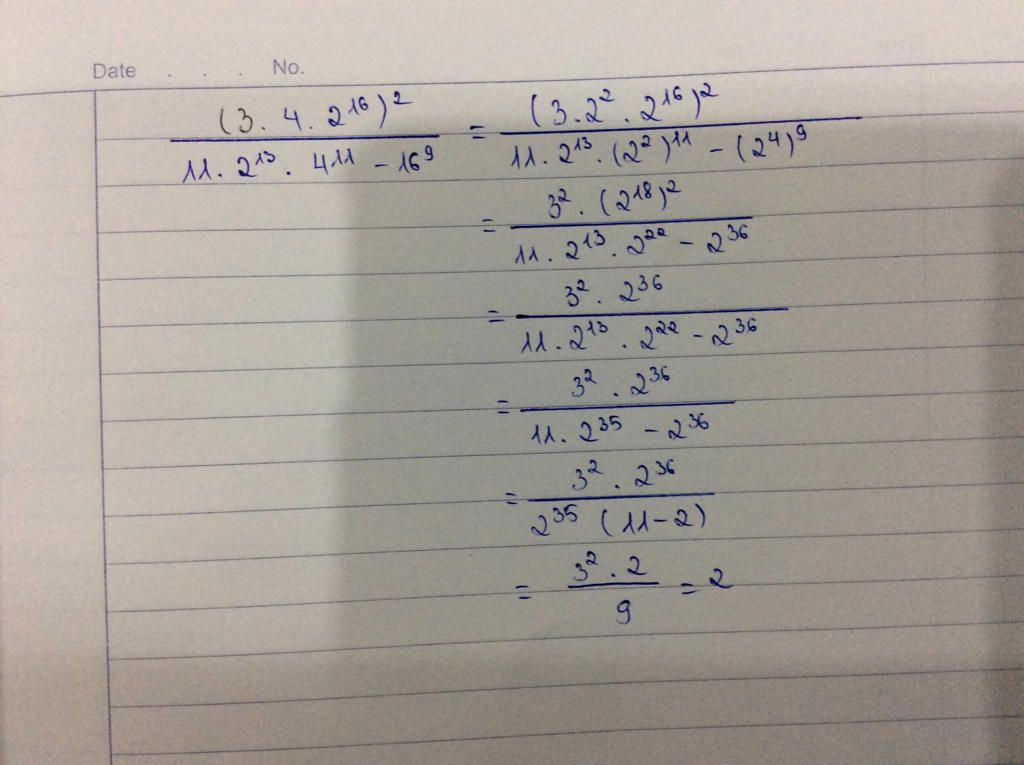 Date . . . No.
(3. 4. 2^16)^2 / 11. 2^13. 4^11 - 16^9 = (3.2^2. 2^16)^2 / 11. 2^13. (2^2)^11 - (2^4)^9
= 3^2. (2^18)^2 / 11. 2^13. 2^22 - 2^36
= 3^2. 2^36 / 11. 2^13. 2^22 - 2^36
= 3^2. 2^36 / 11. 2^35 - 2^36
= 3^2. 2^36 / 2^35 (11-2)
= 3^2. 2 / 9 = 2